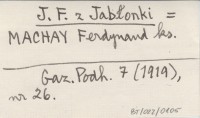 J. F. z Jabłonki =
MACHAY Ferdynand ks.
Gaz. Podh. 7 (1919),
nr 26.